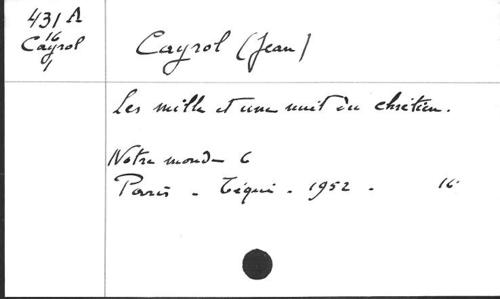 431 A
16
Cayrol
1
Cayrol (Jean)
Les mille et une nuit du chrétien.
Notre monde 6
Paris - Téqui - 1952 - 16